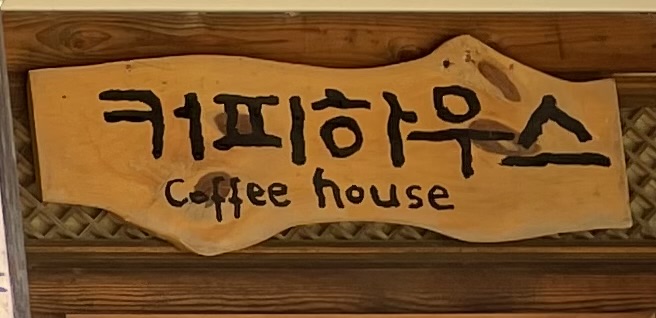 커피하우스
Coffee house